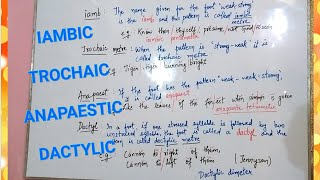 iamb - The name given for the foot "weak-strong"
is the iamb and this pattern is called iambic
metre
IAMBIC
e.g. Know then thyself, presume not God to scan
iambic pentameter
Trochaic metre - When the pattern is "strong-weak" it is
called trochaic metre.
TROCHAIC
e.g. Tiger Tiger burning bright
Anapaest - If the foot has the pattern "weak-weak-strong",
it is called anapaest
ANAPAESTIC
e.g. the leaves of the forest when summer is green
(anapaestic tetrameter)
Dactyl - In a foot, if one stressed syllable is followed by two
unstressed syllables, the foot is called a dactyl and the
metre is called dactylic metre.
DACTYLIC
e.g. Cannon to right of them,
Cannon to left of them (Tennyson)
Dactylic dimeter